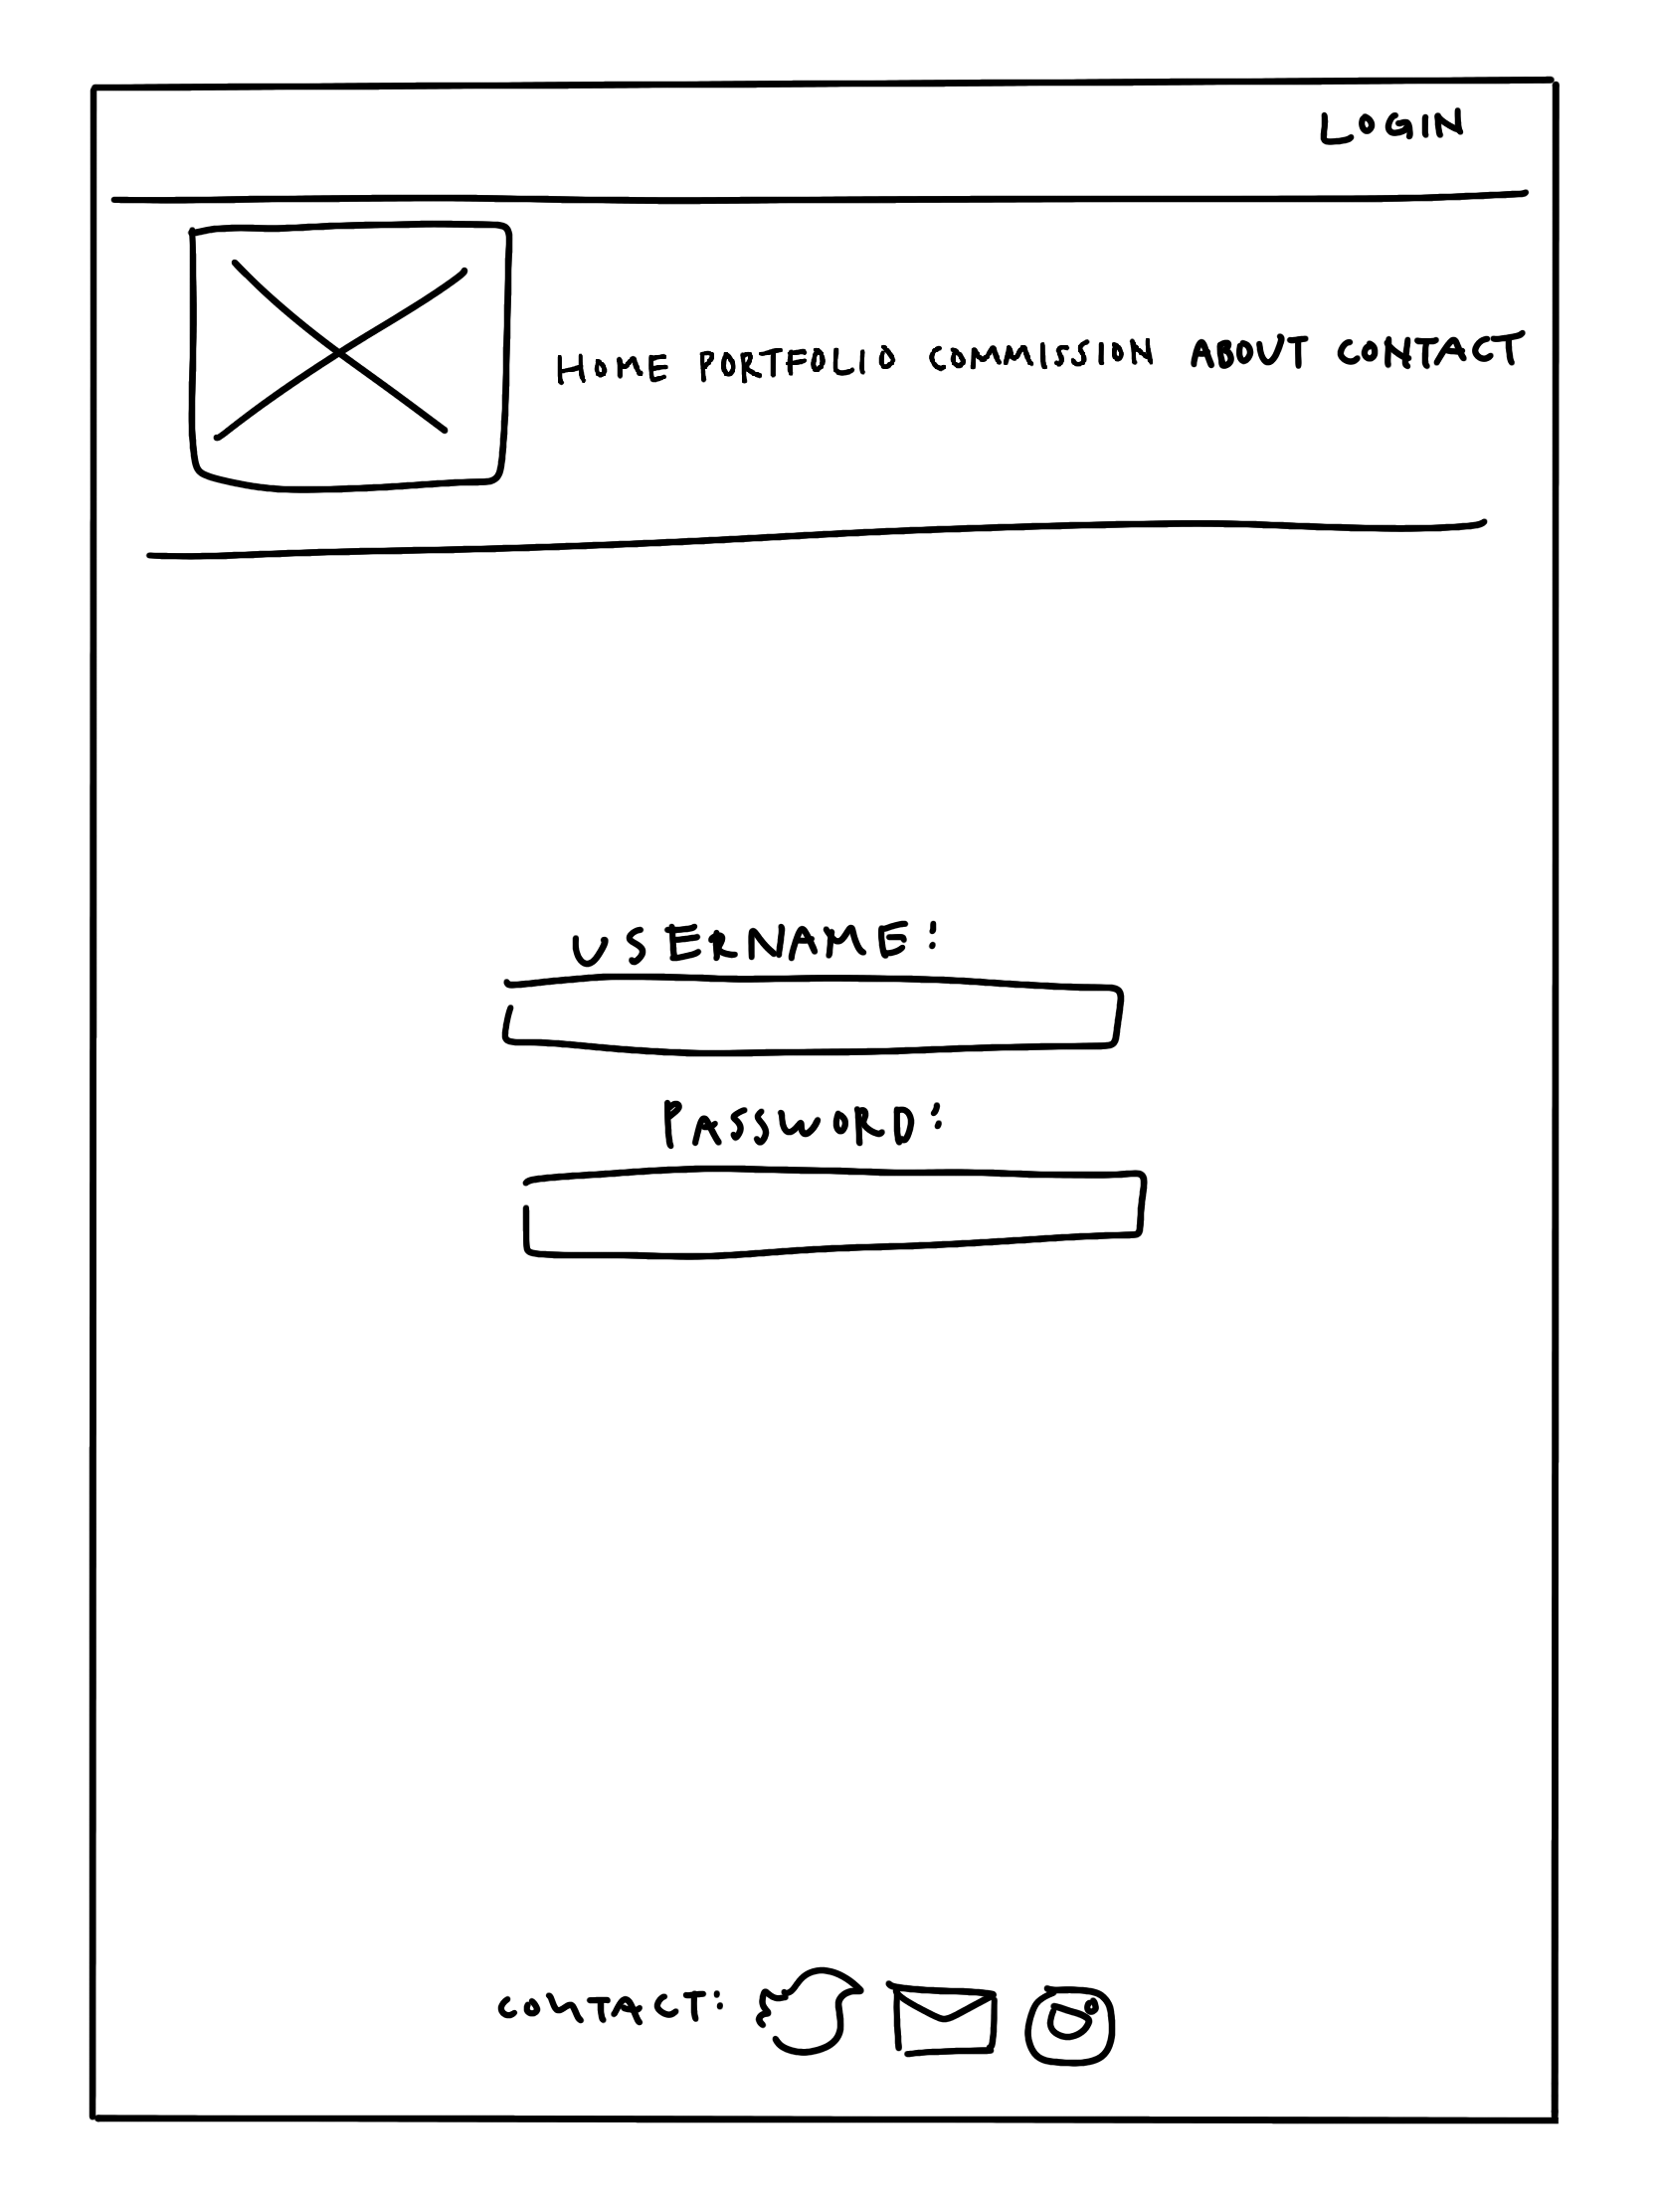 LOGIN
HOME PORTFOLIO COMMISSION ABOUT CONTACT
USERNAME:
PASSWORD:
CONTACT: